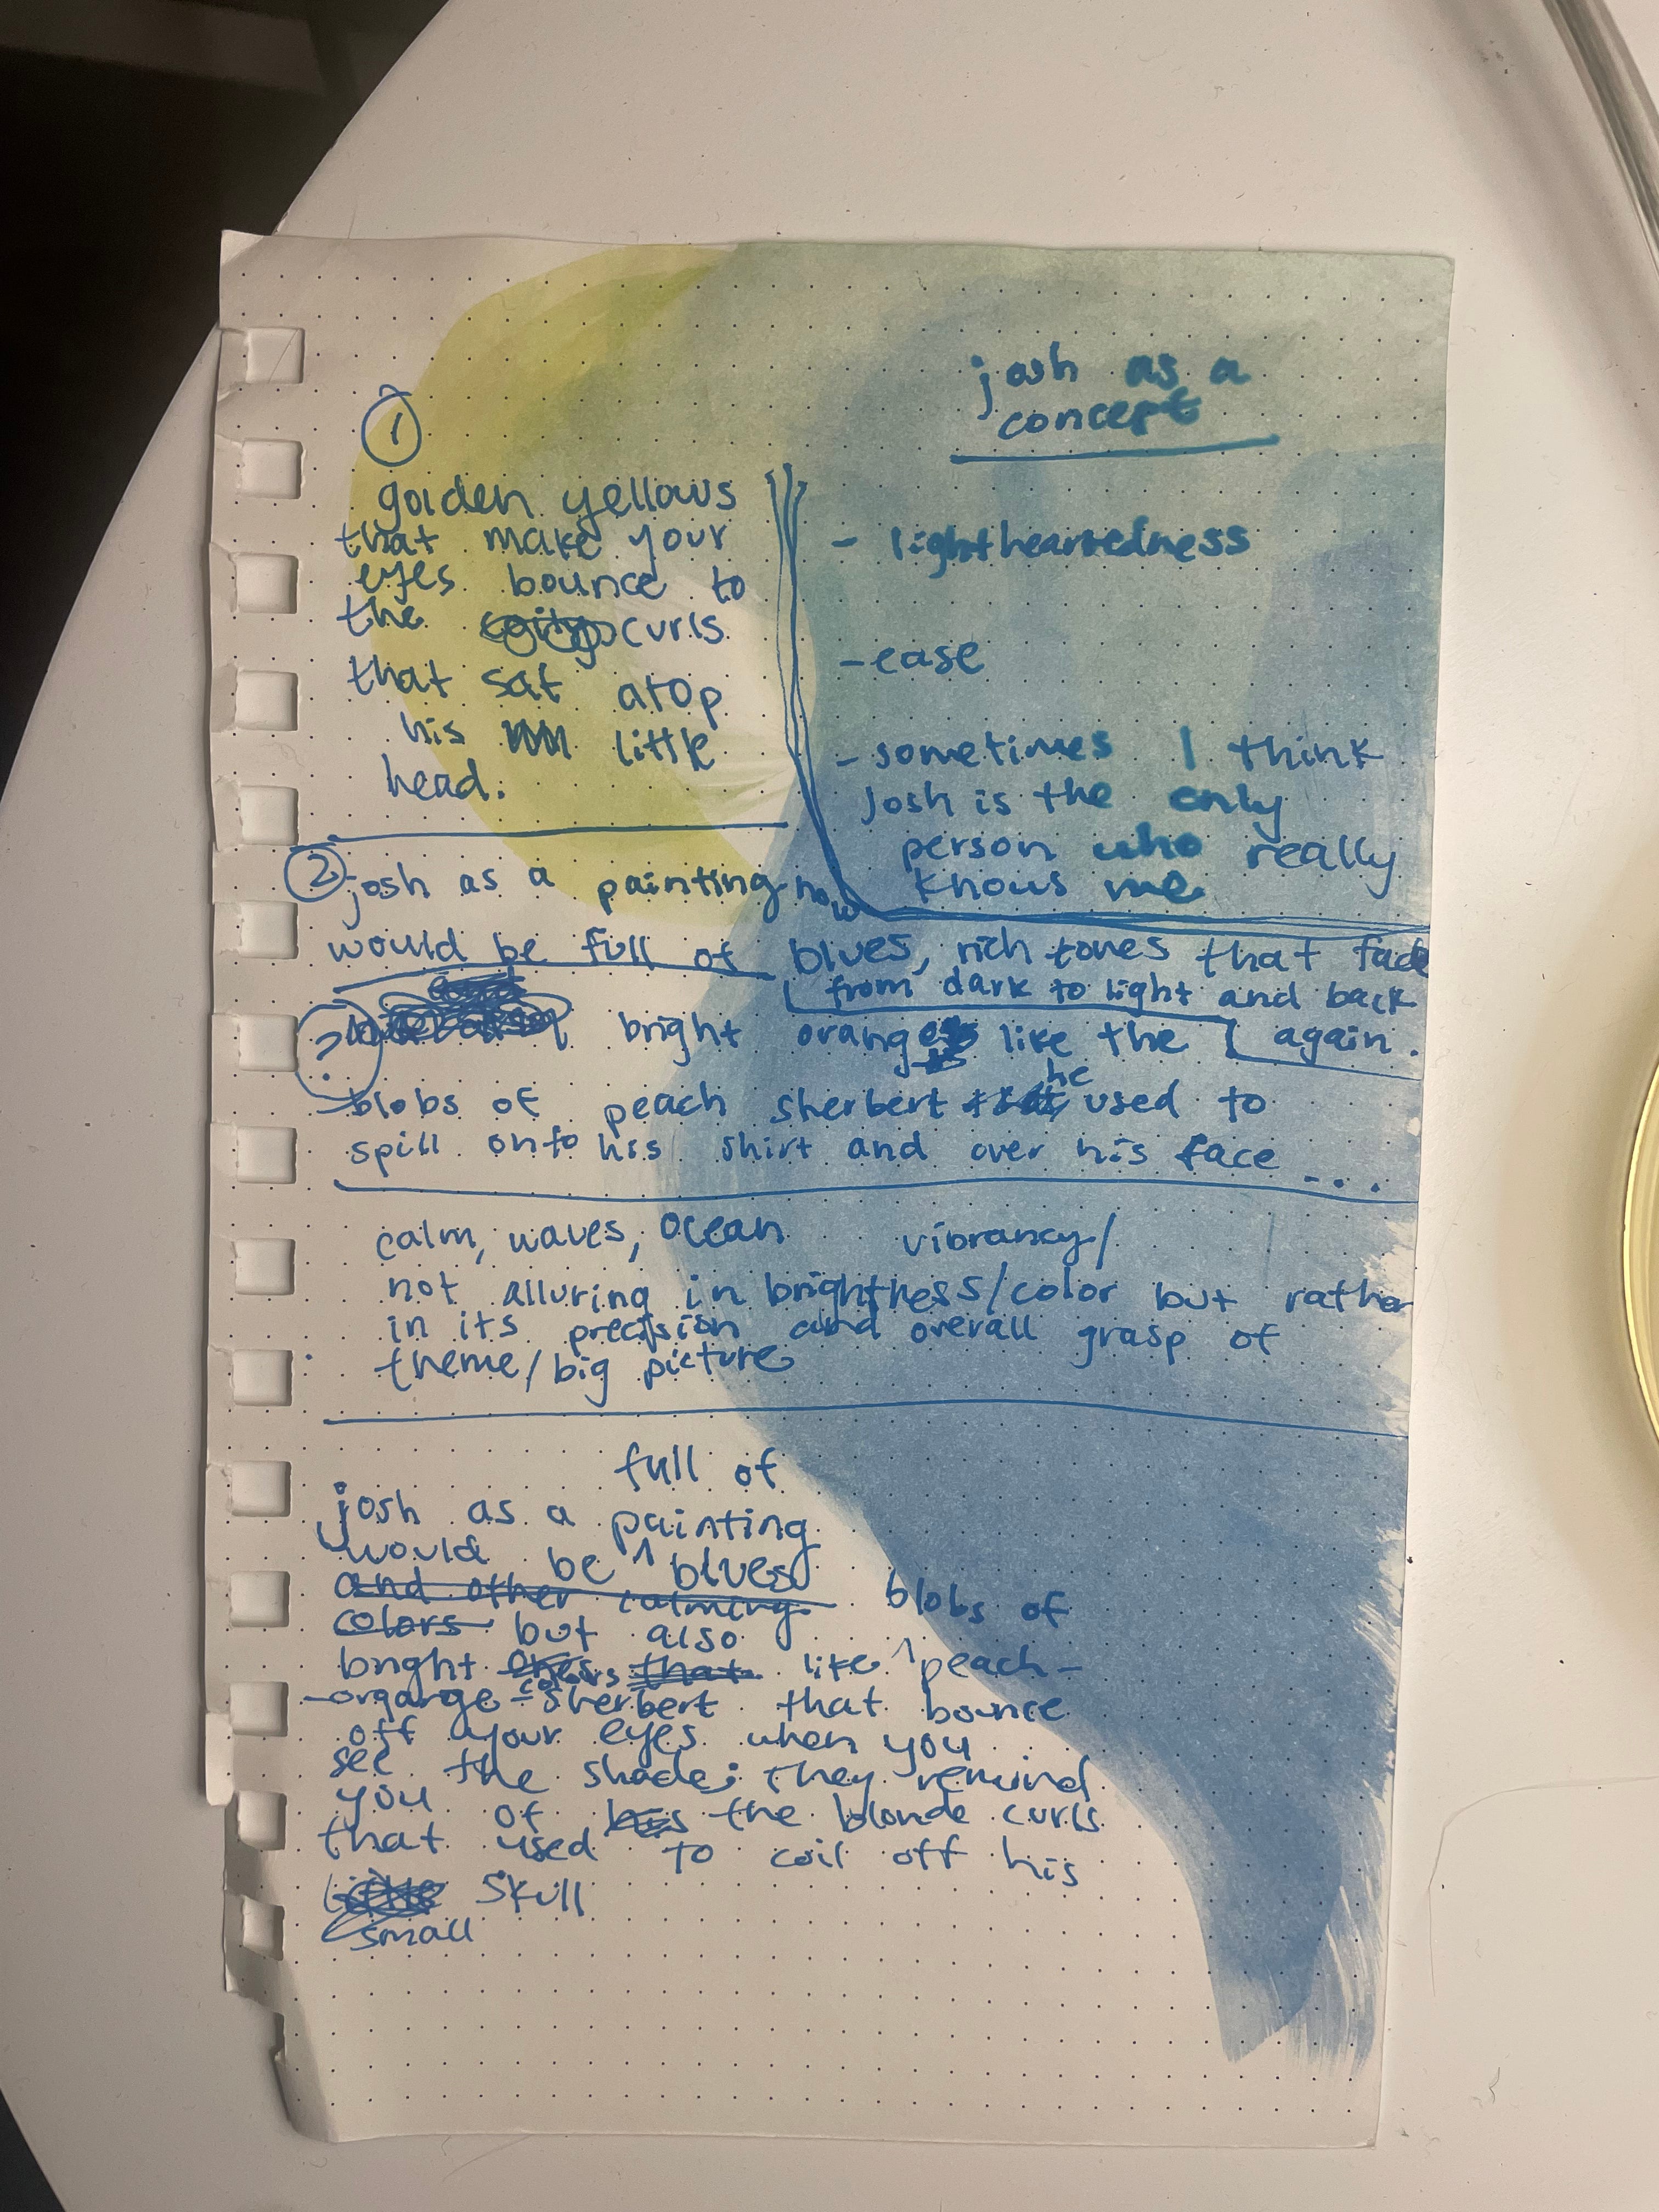 josh as a
concept
- lightheartedness
- ease
- sometimes I think
Josh is the only
person who really
knows me
1
golden yellows
that make your
eyes bounce to
the curls
that sat atop
his little
head.
2 josh as a painting now
would be full of blues, rich tones that fade
from dark to light and back
again.
? bright oranges like the
blobs of peach sherbert he used to
spill onto his shirt and over his face ...
calm, waves, ocean vibrancy/
not alluring in brightness/color but rather
in its precision and overall grasp of
theme/big picture
full of
josh as a painting
would be ^ blues
and other calming blobs of
colors but also
bright ones that like ^ peach-
colors
-organge-sherbert that bounce
off your eyes when you
see the shade; they remind
you of his the blonde curls
that used to coil off his
little skull
small